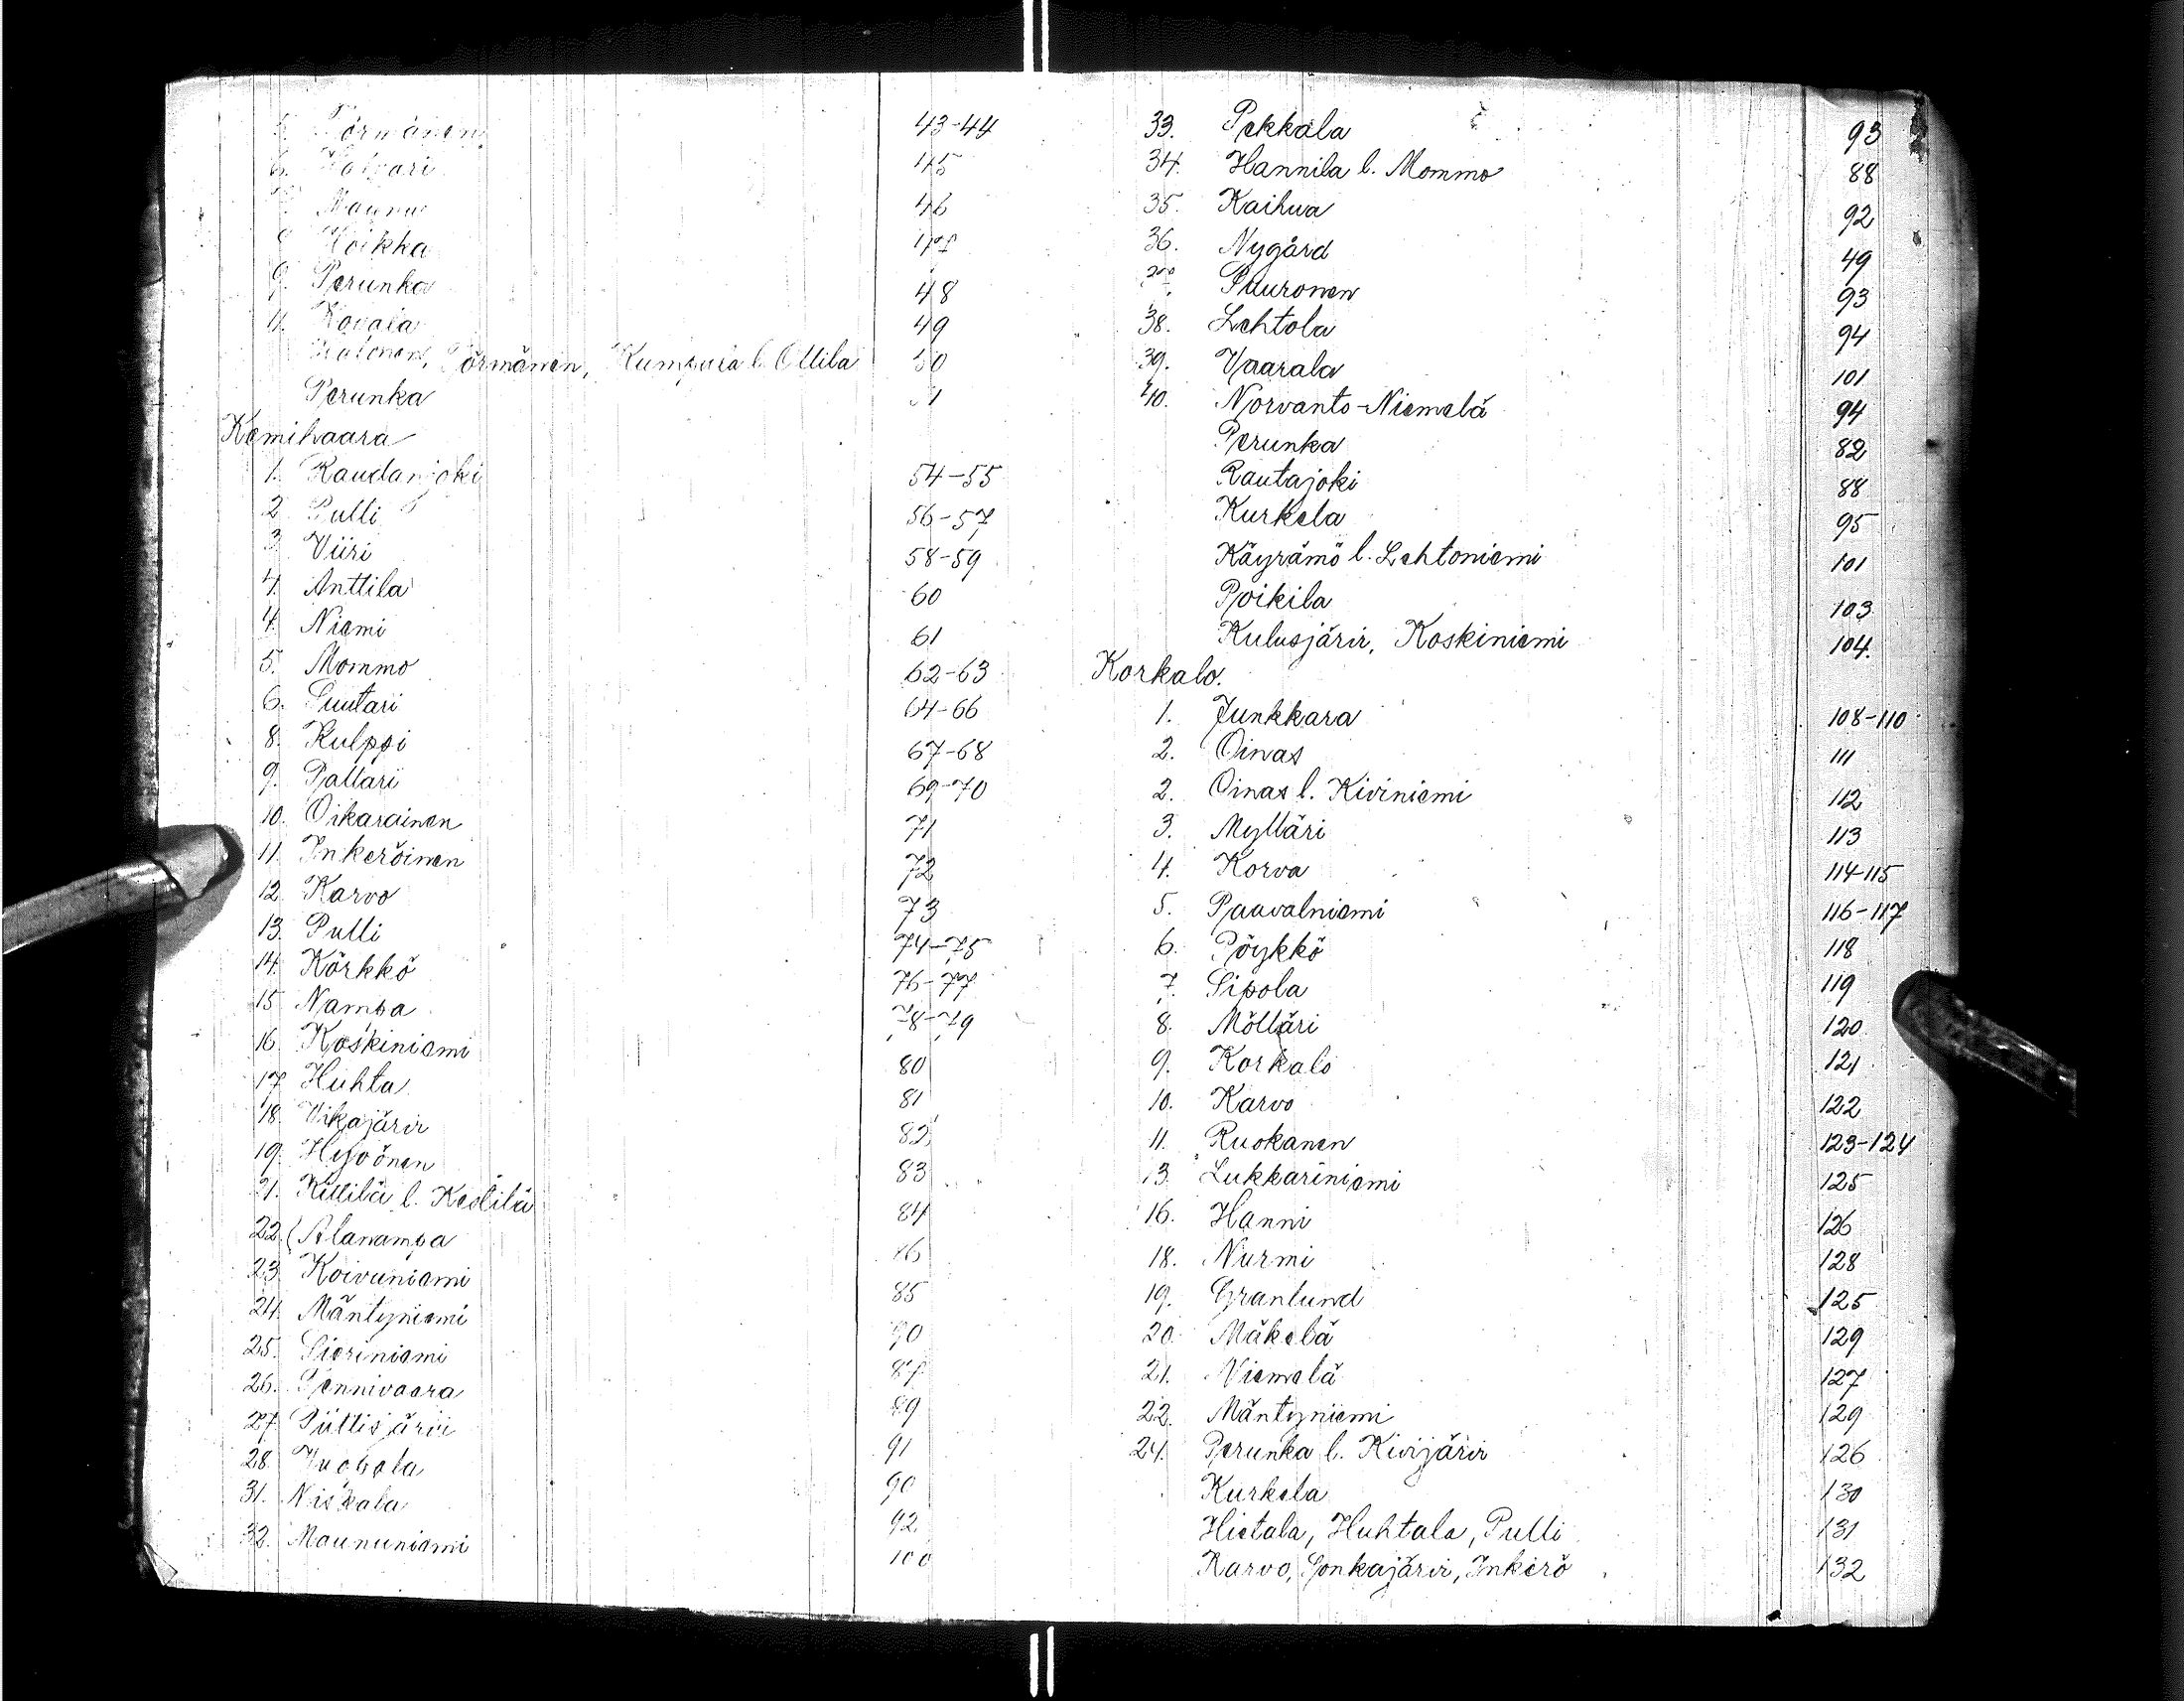 5. Törmänen 43-44
6. Halvari 45
7. Maunu 46
8. Hoikka 47
9. Perunka 48
11. Kovala 49
Halonen, Törmänen, Kumpula l. Ollila 50
Perunka 51
Kemihaara
1. Raudanjoki 54-55
2. Pulli 56-57
3. Viiri 58-59
4. Anttila 60
4. Niemi 61
5. Mommo 62-63
6. Suutari 64-66
8. Kulppi 67-68
9. Pallari 69-70
10. Oikarainen 71
11. Inkeröinen 72
12. Karvo 73
13. Pulli 74-75
14. Körkkö 76-77
15. Nampa 78-79
16. Koskiniemi 80
17. Huhta 81
18. Vikajärvi 82
19. Hyvönen 83
21. Kittilä l. Kestilä 84
22. Alanampa 86
23. Koivuniemi 85
24. Mäntyniemi 90
25. Sieriniemi 87
26. Pennivaara 89
27. Piittisjärvi 91
28. Vuopala 90
31. Niskala 92
32. Maununiemi 100
33. Pekkala 93
34. Hannila l. Mommo 88
35. Kaihua 92
36. Nygård 49
37. Puuronen 93
38. Lehtola 94
39. Vaarala 101
40. Norvanto-Niemelä 94
Perunka 82
Rautajoki 88
Kurkela 95
Käyrämö l. Lehtoniemi 101
Poikila 103
Kulusjärvi, Koskiniemi 104.
Korkalo.
1. Junkkara 108-110
2. Oinas 111
2. Oinas l. Kiviniemi 112
3. Mylläri 113
4. Korva 114-115
5. Paavalniemi 116-117
6. Pöykkö 118
7. Sipola 119
8. Mölläri 120
9. Korkalo 121
10. Karvo 122
11. Ruokanen 123-124
13. Lukkariniemi 125
16. Hanni 126
18. Nurmi 128
19. Granlund 125
20. Mäkelä 129
21. Niemelä 127
22. Mäntyniemi 129
24. Perunka l. Kivijärvi 126
Kurkela 130
Hietala, Huhtala, Pulli 131
Karvo, Sonkajärvi, Inkerö 132